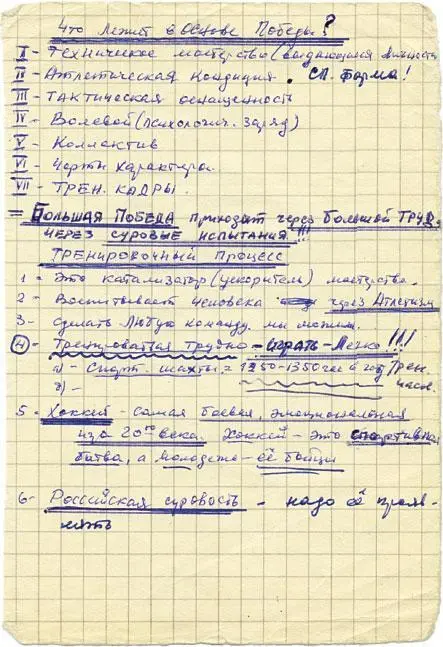 Что Лежит в Основе Победы?
I - Техническое мастерство (выдающаяся личность
II - Атлетическая Кондиция. Сп. форма!
III - Тактическая оснащенность
IV - Волевой (психологич. Заряд)
V - Коллектив
VI - Черты характера.
VII - Трен. Кадры.
= Большая Победа приходит через Большой Труд,
через суровые испытания!!!
Тренировочный процесс
1 - Это катализатор (ускоритель) мастерства.
2 - Воспитывает человека через Атлетизм
3 - Сделать Любую команду мы можем.
4 - Тренироваться трудно - играть - Легко!!!
а) - Спорт. шахты = 1250-1350 час в год Трен.
часов.
б) -
5 - Хоккей - самая боевая, эмоциональная
игра 20го века. Хоккей - это спортивная
битва, а молодежь - её бойцы
6 - Российская суровость - надо её прояв-
лять